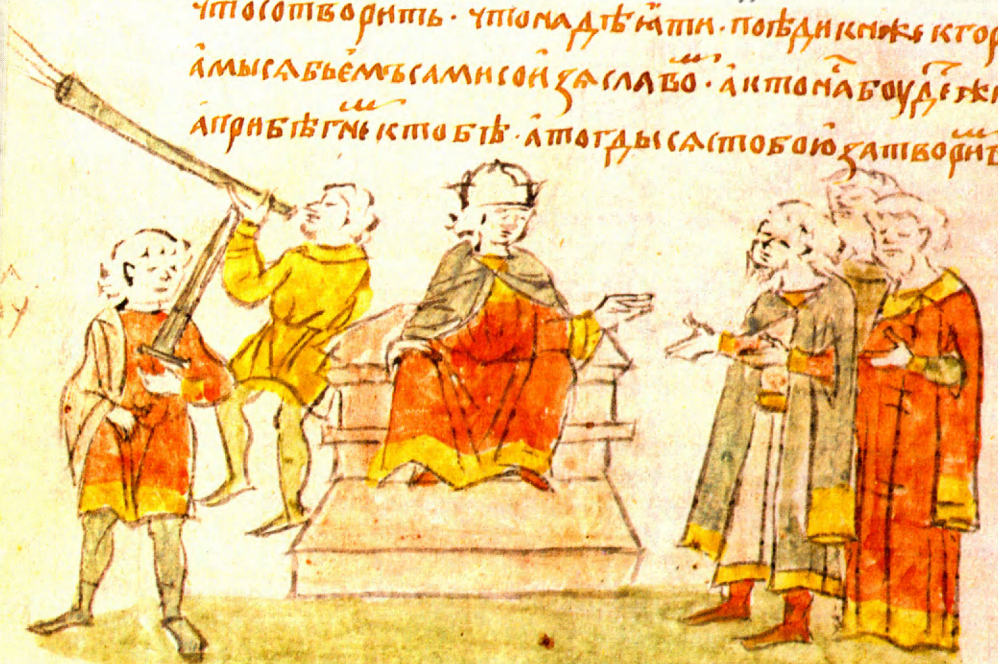 что сотворить · что на дѣꙗти · поѣди кнѧже к гор
а мы сѧ бьемъ сами со изѧславоⷨ · а кто наⷭ боудеⷮ жи
а прибѣгнеⷮ к тобѣ · а тогды сѧ с тобою затвориⷨ